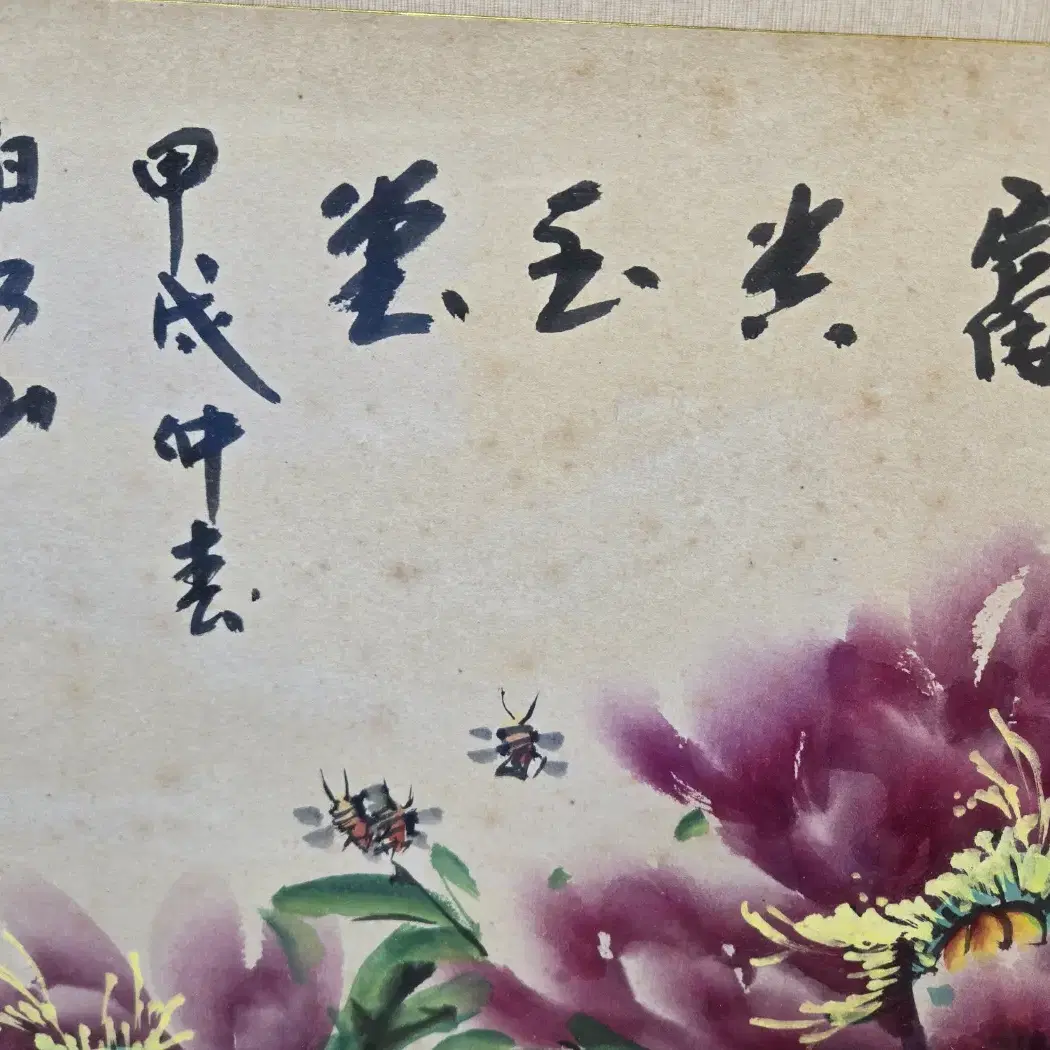 富貴玉堂
甲戌仲春